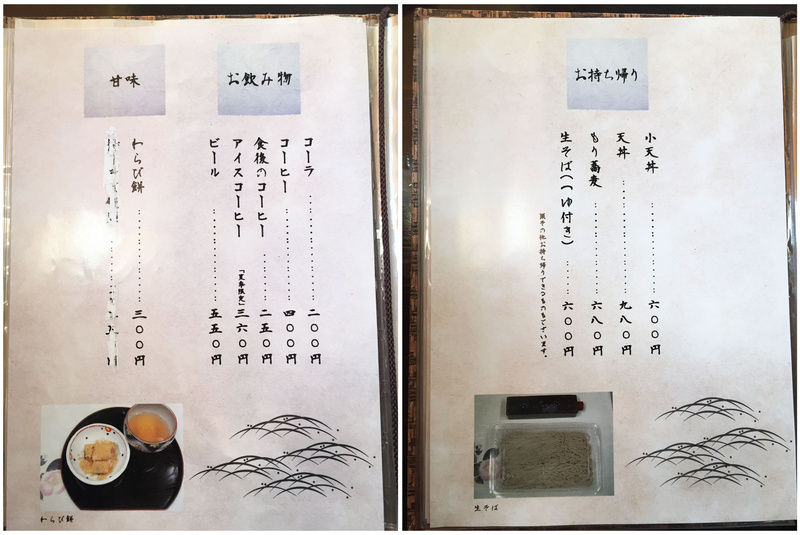 お飲み物
コーラ……………二〇〇円
コーヒー……………四〇〇円
食後のコーヒー………二五〇円
アイスコーヒー「夏季限定」三六〇円
ビール……………五五〇円
甘味
わらび餅……………三〇〇円
わらび餅
お持ち帰り
小天丼……………六〇〇円
天丼……………九八〇円
もり蕎麦……………六八〇円
生そば(つゆ付き)……六〇〇円
その他お持ち帰りできつものもございます。
生そば